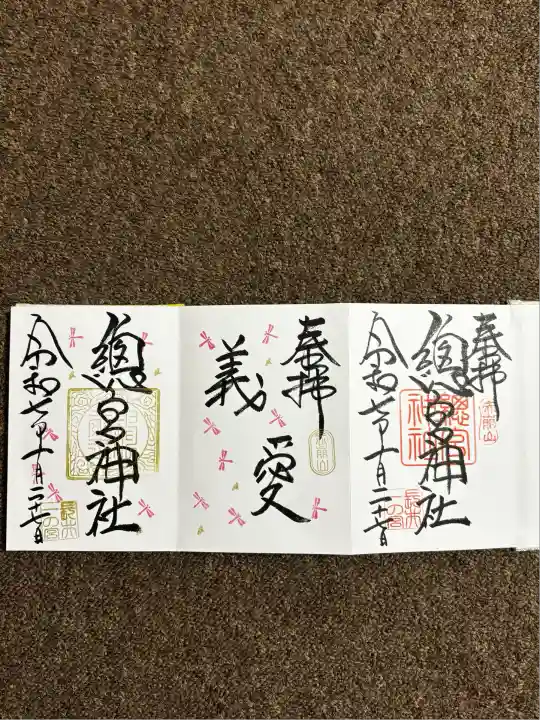 奉拝
總宮神社
令和七年十月二十七日
總宮神社
長井
一の宮
奉拝
愛
義
總宮神社
令和七年十月二十七日
長井
一の宮